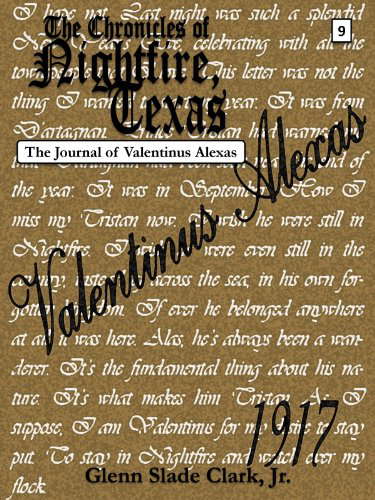 I hope not. Last night was such a splendid
The Chronicles of
9
Year's Eve, celebrating with all the
Nightfire,
This letter was not the
thing I wanted year. It was from
Texas
D'artagnan. had warned me
The Journal of Valentinus Alexas
end of
the year. It was in September. How I
miss my Tristan now. I wish he were still in
Nightfire. I were even still in the
across the sea, in his own for-
Valentinus Alexas
gotten If ever he belonged anywhere
at all it was here. Alas, he's always been a wan-
derer. It's the fundamental thing about his na-
ture. It's what makes him Tristan. As I
suppose, I am Valentinus for my desire to stay
1917
put. To stay in Nightfire and watch over my
flock.
Glenn Slade Clark, Jr.